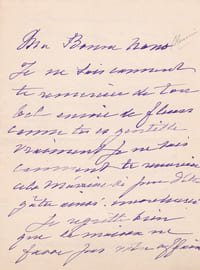 Ma Bonne Nono
Je ne sais comment
te remercier de ton
bel envoi de fleurs
comme tu es gentille
vraiment je ne sais
comment te remercier
gâtée ainsi
Je regrette bien
que la maison ne
fasse pas votre affaire